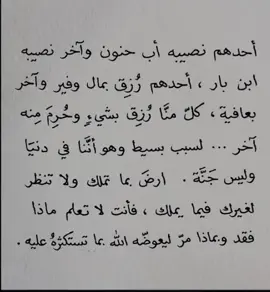 أحدهم نصيبه أب حنون وآخر نصيبه
ابن بار ، أحدهم رُزِق بمال وفير وآخر
بعافية ، كلّ منَّا رُزِق بشيءٍ وحُرِمَ مِنه
آخر ... لسبب بسيط وهو أنَّنا في دنيَا
وليس جَنَّة . ارضَ بما تملك ولا تنظر
لغيرك فيما يملك ، فأنت لا تعلم ماذا
فقد وبماذا مرّ ليعوضّه الله بما تستكثرهُ عليه .